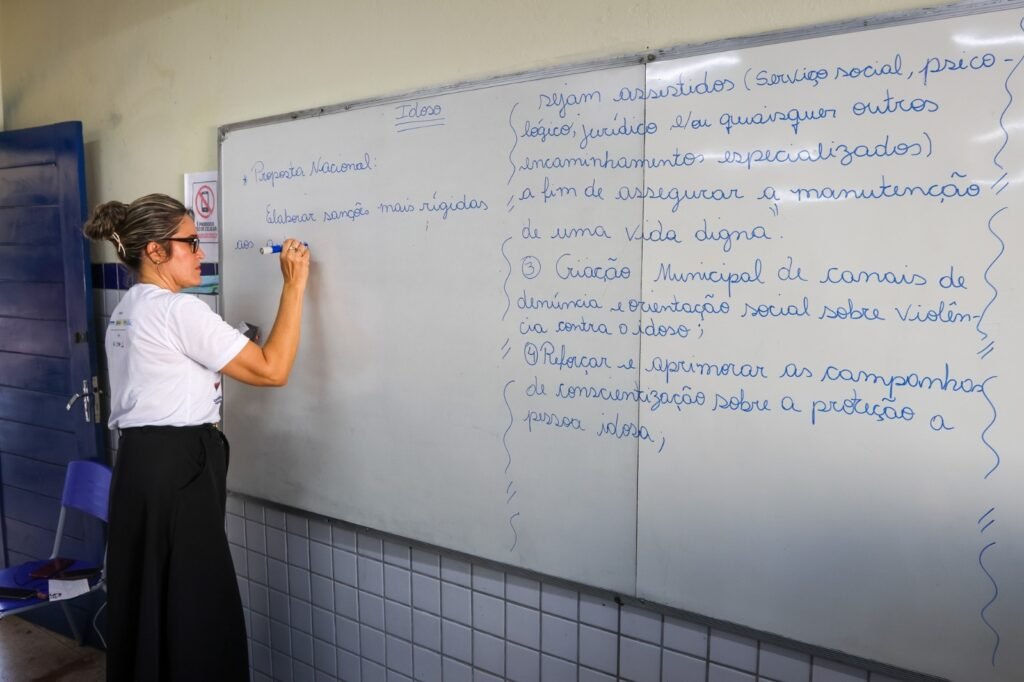 Idoso
* Proposta Nacional:
Elaborar sanções mais rígidas
aos
sejam assistidos (Serviço social, psico-
lógico, jurídico e/ou quaisquer outros
encaminhamentos especializados)
a fim de assegurar a manutenção
de uma vida digna.
③ Criação Municipal de canais de
denúncia e orientação social sobre violên-
cia contra o idoso;
④ Reforçar e aprimorar as campanhas
de conscientização sobre a proteção a
pessoa idosa;